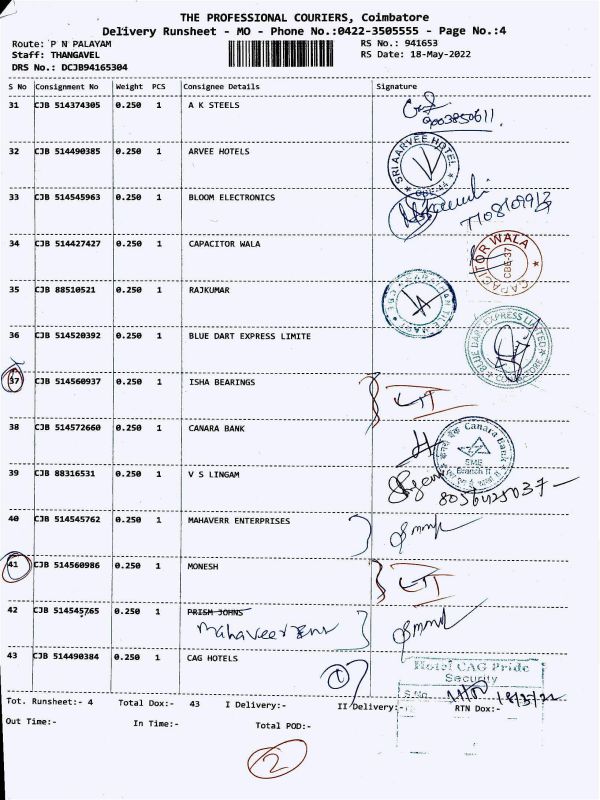 THE PROFESSIONAL COURIERS, Coimbatore
Delivery Runsheet - MO - Phone No.:0422-3505555 - Page No.:4
Route: P N PALAYAM RS No.: 941653
Staff: THANGAVEL RS Date: 18-May-2022
DRS No.: DCJB94165304
S No Consignment No Weight PCS Consignee Details Signature
31 CJB 514374305 0.250 1 A K STEELS
9003850611
32 CJB 514490385 0.250 1 ARVEE HOTELS
SRI AARVEE HOTEL
CBE-44
33 CJB 514545963 0.250 1 BLOOM ELECTRONICS
34 CJB 514427427 0.250 1 CAPACITOR WALA
CAPACITOR WALA
CBE-37
35 CJB 88510521 0.250 1 RAJKUMAR
36 CJB 514520392 0.250 1 BLUE DART EXPRESS LIMITE
BLUE DART EXPRESS LIMITED
37 CJB 514560937 0.250 1 ISHA BEARINGS
38 CJB 514572660 0.250 1 CANARA BANK
केनरा बैंक Canara Bank
SME
Branch II
39 CJB 88316531 0.250 1 V S LINGAM
40 CJB 514545762 0.250 1 MAHAVERR ENTERPRISES
41 CJB 514560986 0.250 1 MONESH
42 CJB 514545765 0.250 1 PRISM JOHNS
Mahaveer
43 CJB 514490384 0.250 1 CAG HOTELS
1
Hotel CAG Pride
Security
S.No
Tot. Runsheet:- 4 Total Dox:- 43 I Delivery:- II Delivery:- RTN Dox:-
Out Time:- In Time:- Total POD:-
2